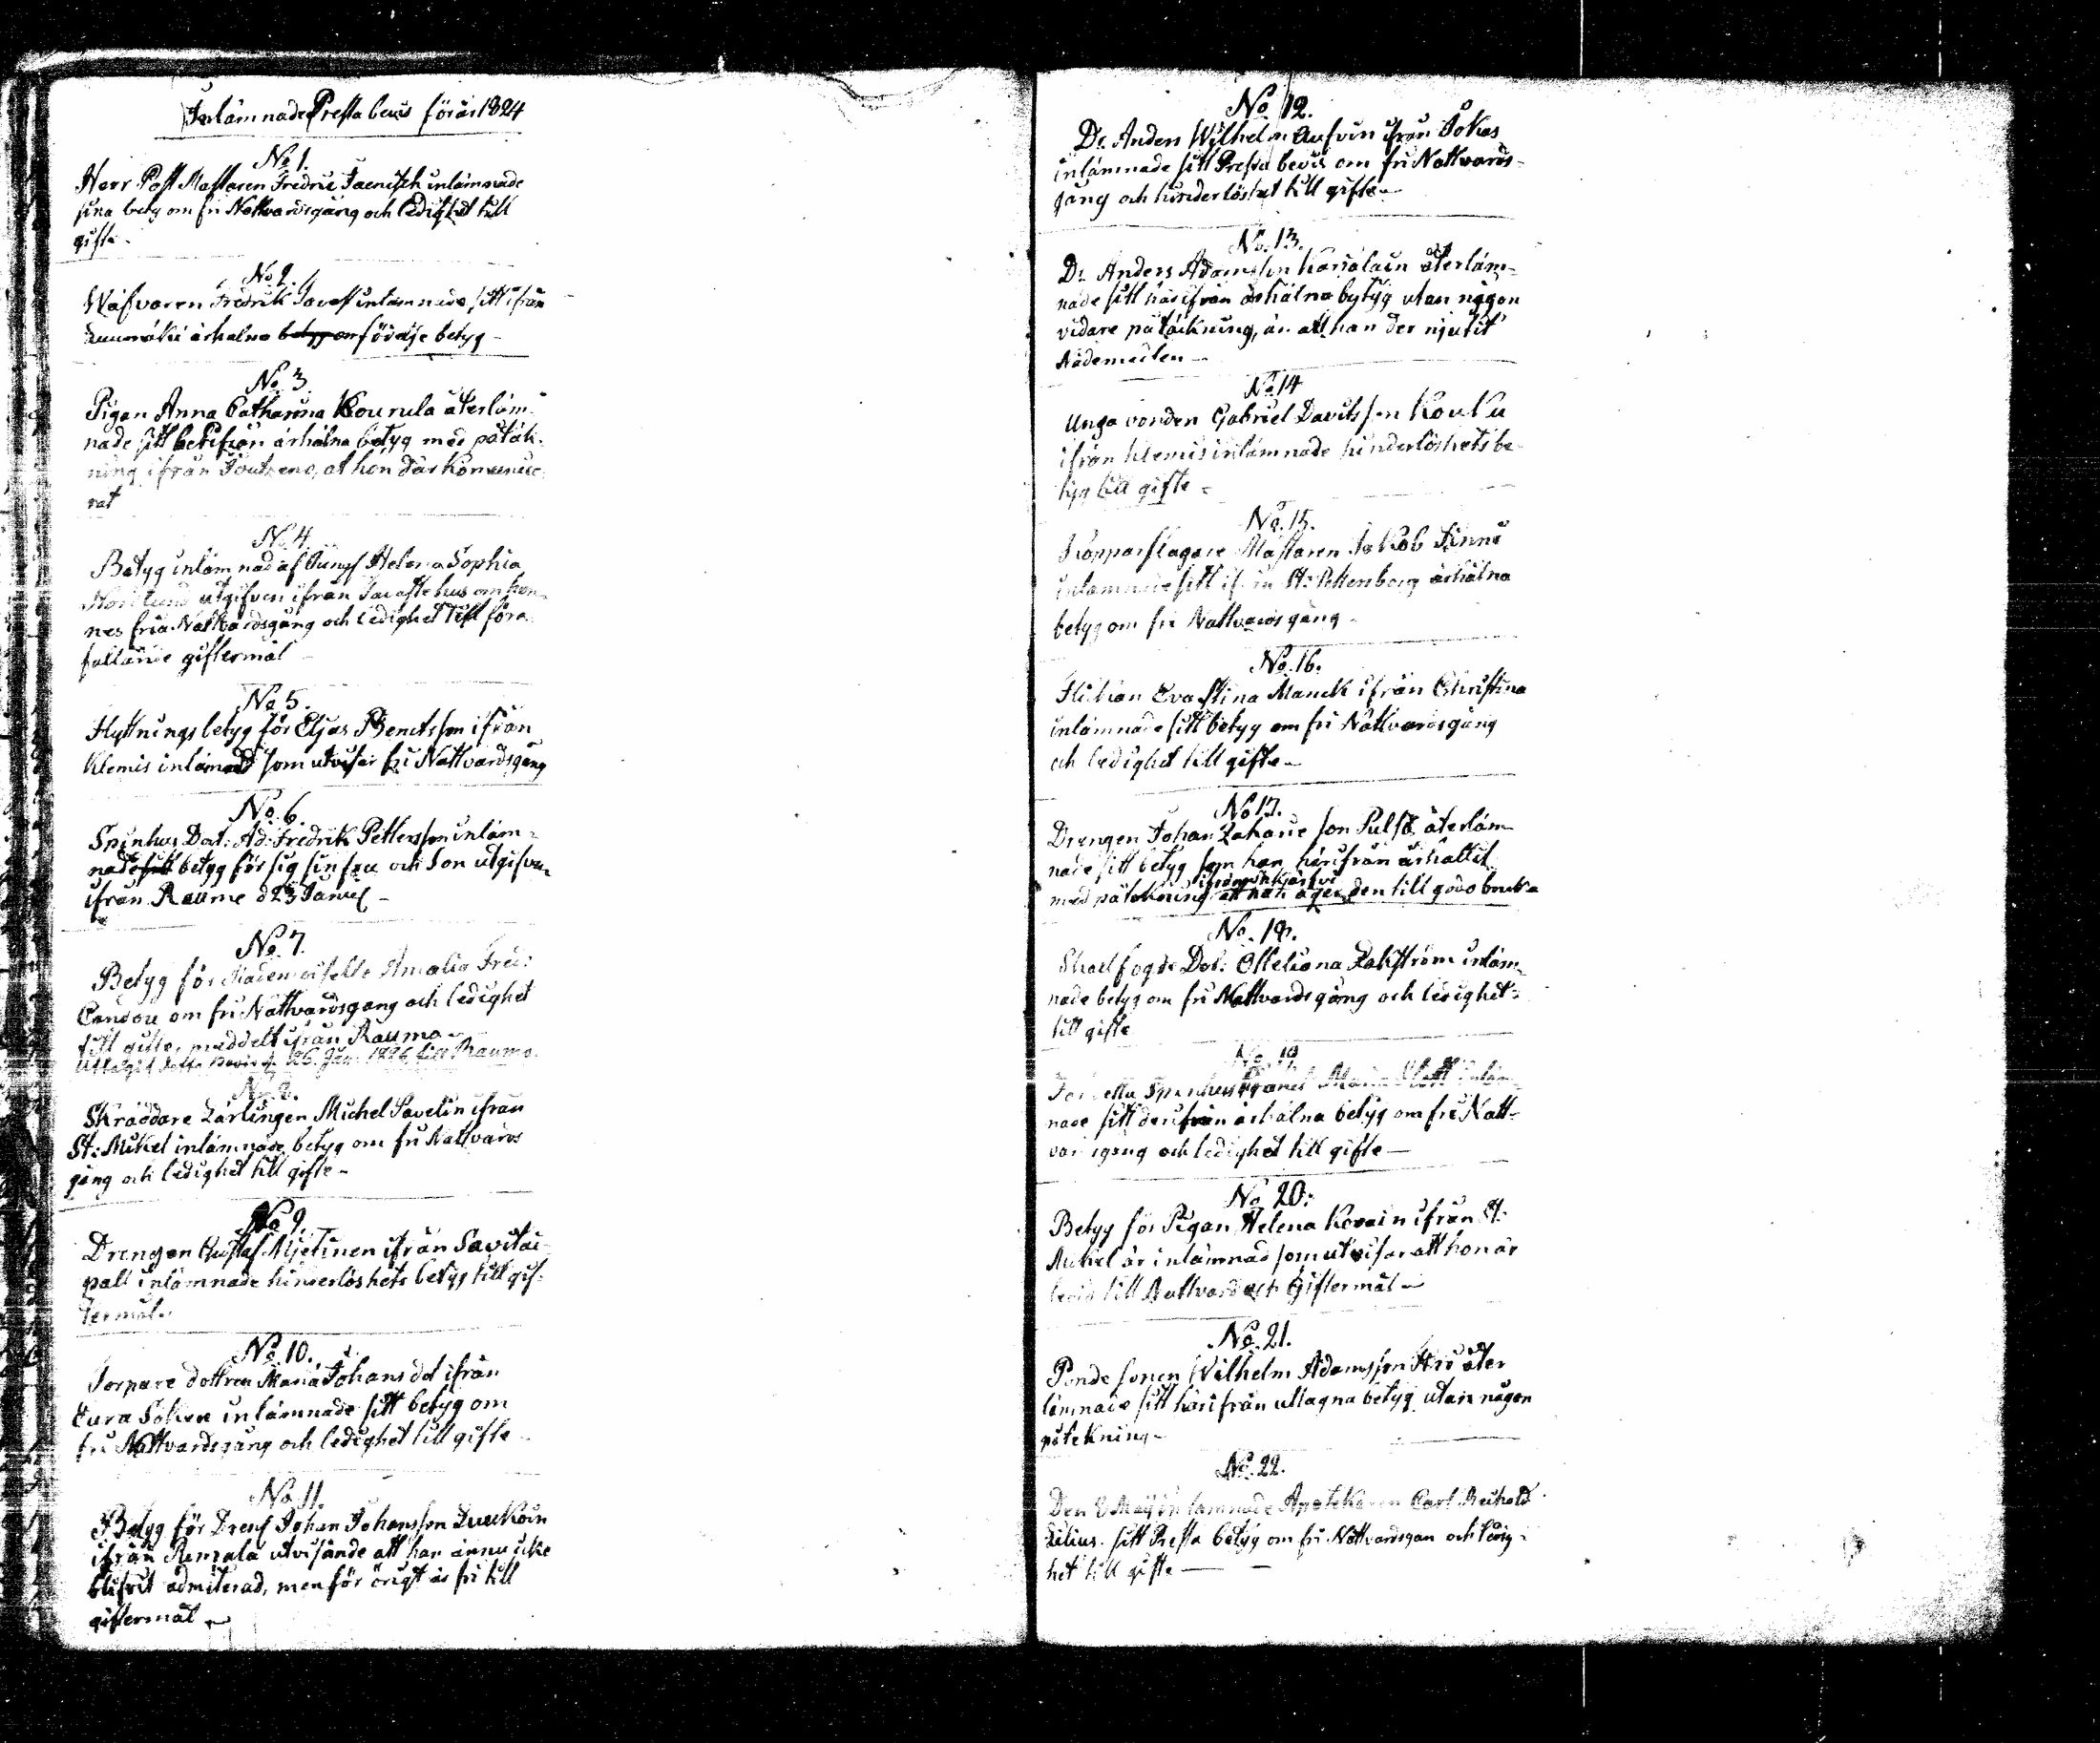 Inlämnade Presta bevis för år 1824
No 1.
Herr Post Mastaren Fredric Jaenisch inlämnade
sina betyg om fri Nattvardsgång och ledighet till
gifte
No 2.
Fredrik inlämnade sitt ifrån
ärhalna betyg om förelse betyg
No 3
Pigan Anna Catharina Kourula återläm-
nade sitt ärhålna betyg med påtäk-
ning ifrån Joutseno, at hon där
rat
No. 4.
Betyg inlämnad af Jungf Helena Sophia
utgifven ifrån Tavastehus om hen-
nes fria Nattvardsgång och ledighet till före
fallande giftermål
No 5.
Flyttnings betyg för Eljas Bentsson ifrån
Klemis inlämnad som utvisar fri Nattvardsgång
No. 6.
Spinhus Dod: Ad: Fredrik Pettersson inläm-
nade sitt betyg för sig sin fru och Son utgifven
ifrån Raumo d 23 Januf
No. 7.
Betyg för Mademoiselle Amalia
om fri Nattvardsgang och ledighet
till gifte, meddelt ifrån Raumo
Uttagit detta bevis d. 26. Jan. 1826 till Raumo.
No. 8.
Skräddare Lärlingen Michel Savelin ifrån
St: Mikel inlämnade betyg om fri Nattvards
gång och ledighet till gifte -
No 9.
Drengen Gustaf Mjetinen ifrån Savitai-
pall inlämnade hinderlöshets betyg till gif-
termål.
No. 10.
Torpare dottren Maria Johans dot ifrån
Eura Soken inlämnade sitt betyg om
fri Nattvardsgång och ledighet till gifte
No. 11.
Betyg för Drenf Johan Johansson
ifrån utvisande att han ännu icke
blifvit admiterad, men för örigt är fri till
giftermål
No. 12.
Dr. Anders Wilhelm ifrån Jokas
inlämnade sitt Presta bevis om fri Nattvards-
gång och hinderlöshet till gifte
No. 13.
Dr. Anders Adamsson Karialain återläm-
nade sitt härifrån ärhålna bytyg utan någon
vidare påtäckning, än att han der njutit
Nådemedlen
No. 14
Unga vonden Gabriel Davitsson Kouku
ifrån Klemis inlämnade hinderlöshets be-
tyg till gifte
No. 15.
Kopparslagare Mästaren Jakob Finne
inlämnade sitt ifrån St: Pettersborg ärhålna
betyg om fri Nattvards gång
No. 16.
Flickan Eva Stina Manck ifrån Christina
inlämnade sitt betyg om fri Nattvardsgång
och ledighet till gifte
No 17.
Drengen Johan Zakarie son Pulsa återläm-
nade sitt betyg som han härifrån ärhållit
med påtekning att han äger den till godo bruka
No. 18.
Dot: inläm-
nade betyg om fri Nattvardsgång och ledighet
till gifte
No. 19
Maria inläm-
nade sitt derifrån ärhålna betyg om fri Natt-
vardsgang och ledighet till gifte
No 20:
Betyg för Pigan Helena ifrån St:
Mickel är inlämnad som utvisar att hon är
ledig till Nattvard och Giftermål
No. 21.
Bonde sonen Wilhelm Adamsson åter
lämnade sitt härifrån uttagna betyg utan någon
påtekning
No. 22.
Den 8 Maij inlämnade Apotekaren Carl
Zilius sitt Presta betyg om fri Nattvardsgan och ledig-
het till gifte